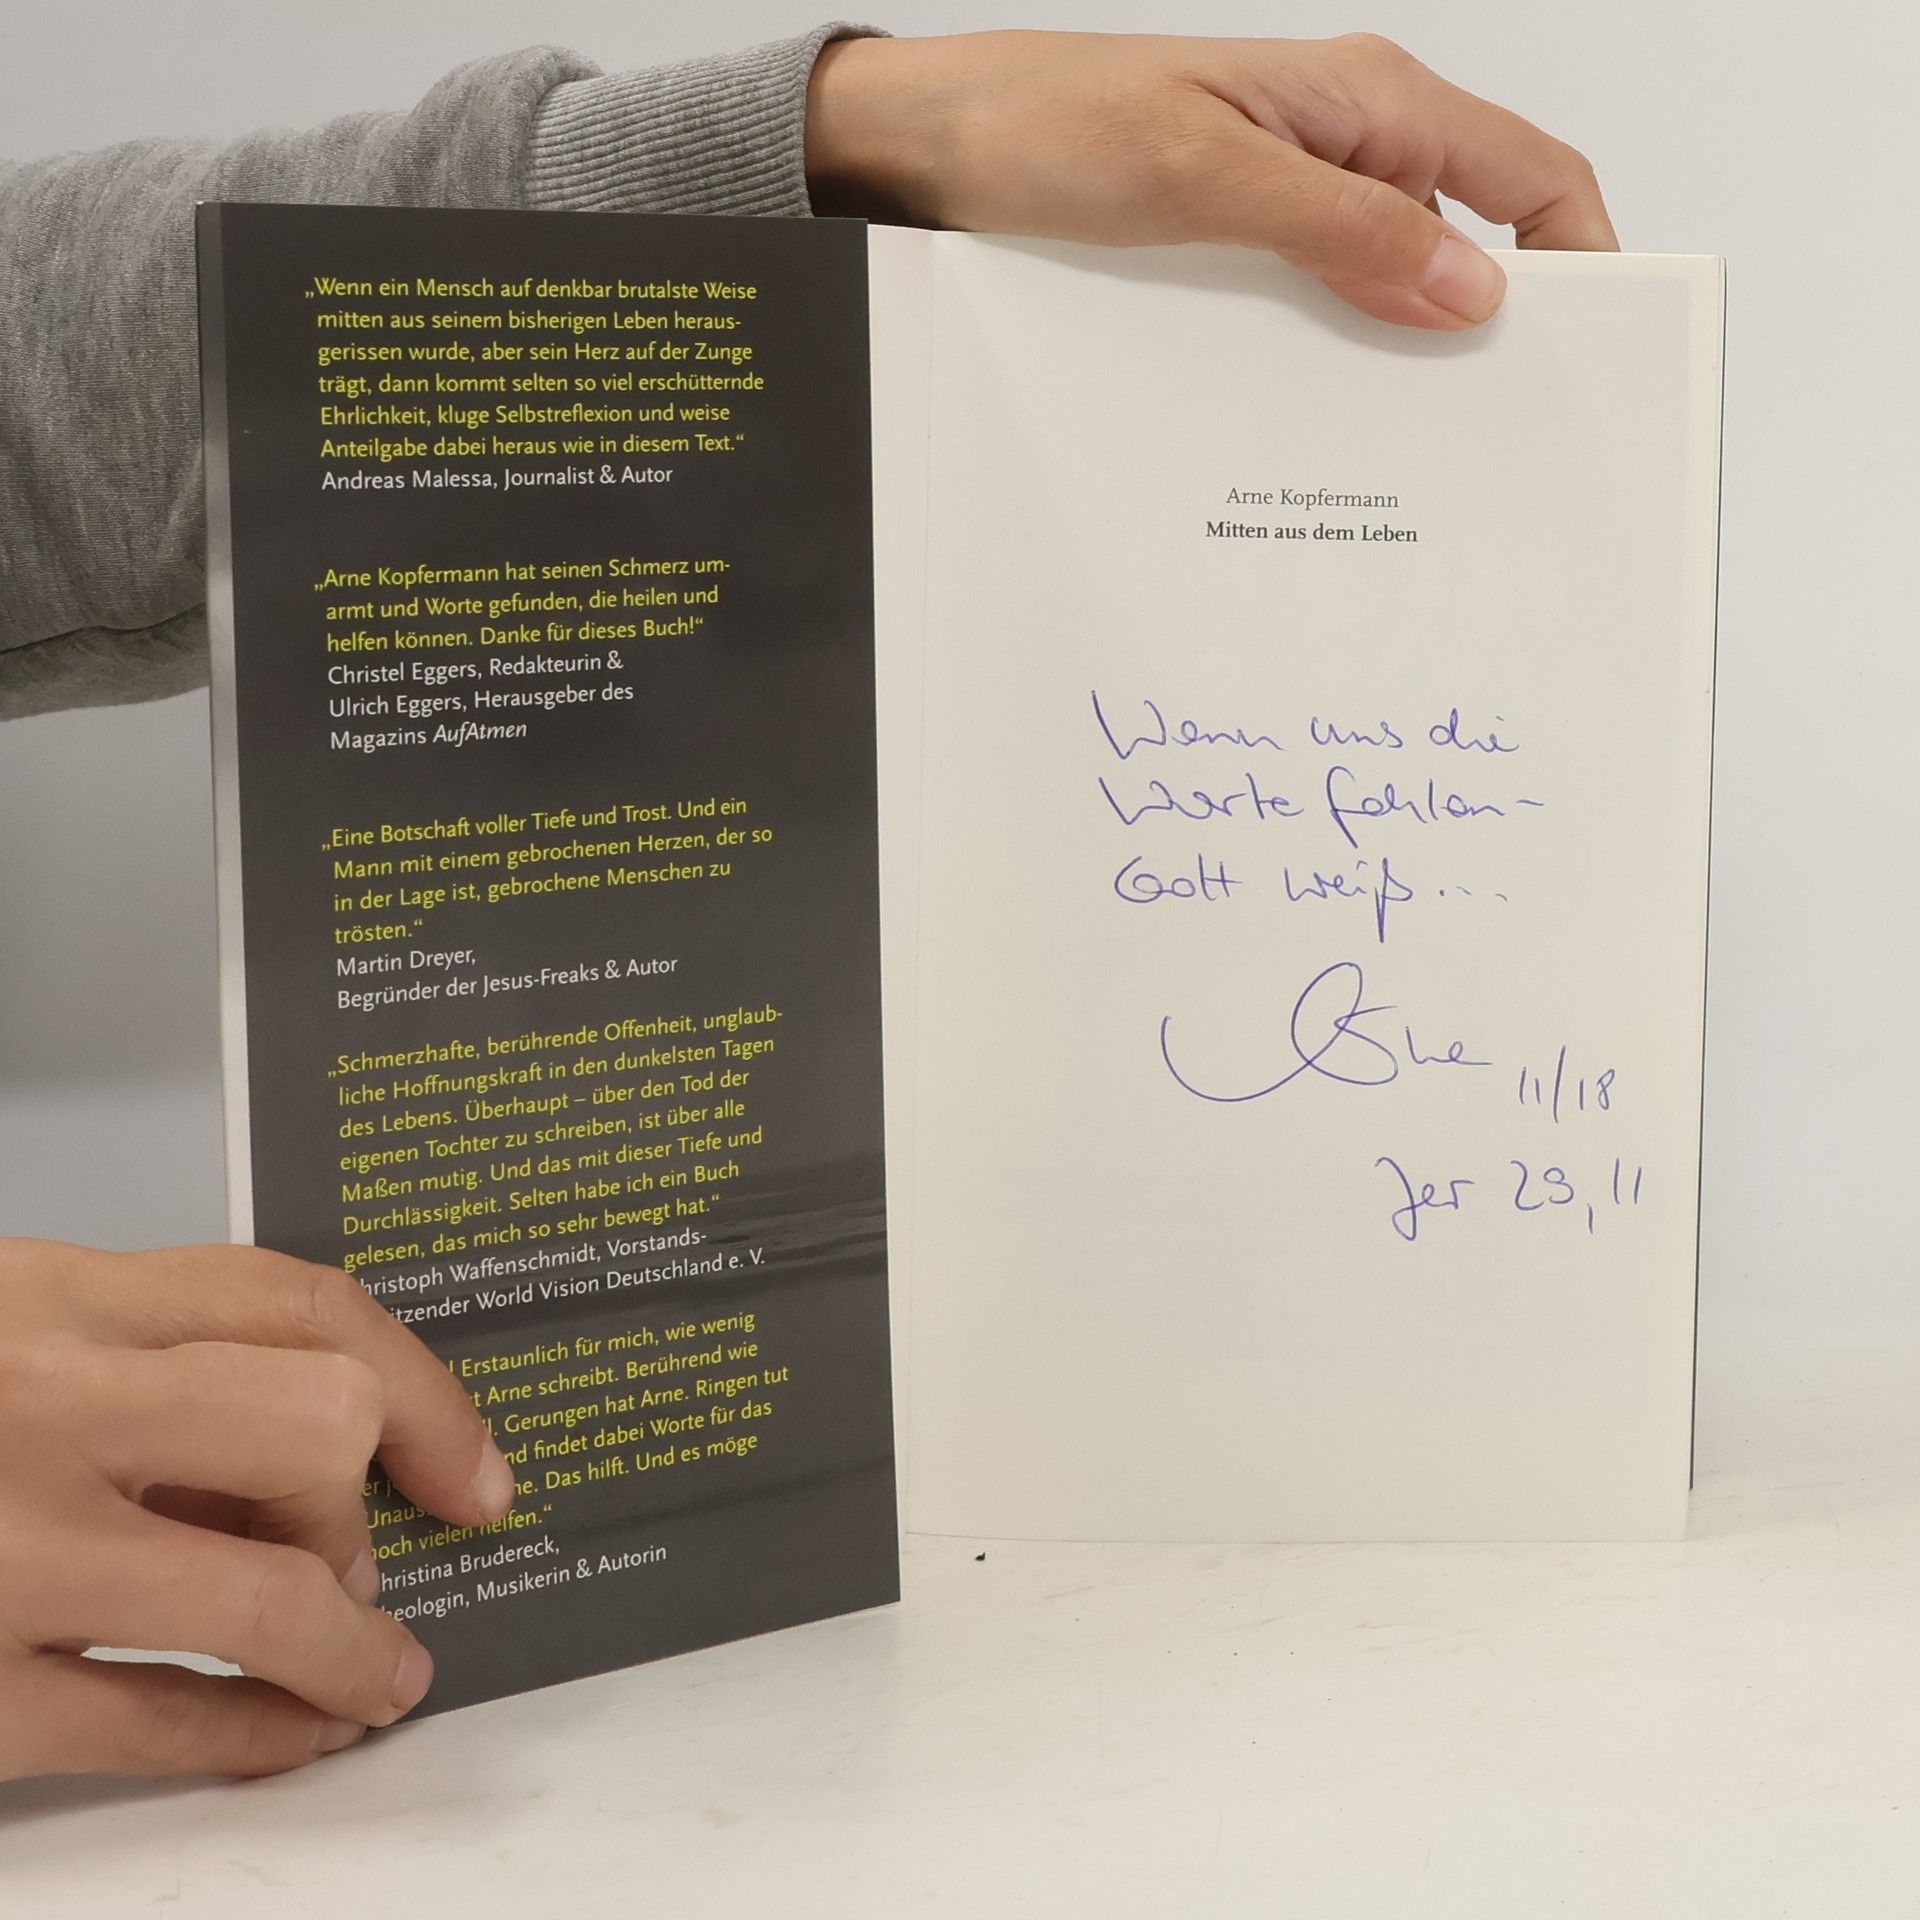 „Wenn ein Mensch auf denkbar brutalste Weise
mitten aus seinem bisherigen Leben heraus-
gerissen wurde, aber sein Herz auf der Zunge
trägt, dann kommt selten so viel erschütternde
Ehrlichkeit, kluge Selbstreflexion und weise
Anteilgabe dabei heraus wie in diesem Text.“
Andreas Malessa, Journalist & Autor
„Arne Kopfermann hat seinen Schmerz um-
armt und Worte gefunden, die heilen und
helfen können. Danke für dieses Buch!“
Christel Eggers, Redakteurin &
Ulrich Eggers, Herausgeber des
Magazins AufAtmen
„Eine Botschaft voller Tiefe und Trost. Und ein
Mann mit einem gebrochenen Herzen, der so
in der Lage ist, gebrochene Menschen zu
trösten.“
Martin Dreyer,
Begründer der Jesus-Freaks & Autor
„Schmerzhafte, berührende Offenheit, unglaub-
liche Hoffnungskraft in den dunkelsten Tagen
des Lebens. Überhaupt – über den Tod der
eigenen Tochter zu schreiben, ist über alle
Maßen mutig. Und das mit dieser Tiefe und
Durchlässigkeit. Selten habe ich ein Buch
gelesen, das mich so sehr bewegt hat.“
hristoph Waffenschmidt, Vorstands-
itzender World Vision Deutschland e. V.
Erstaunlich für mich, wie wenig
Arne schreibt. Berührend wie
Gerungen hat Arne. Ringen tut
nd findet dabei Worte für das
Das hilft. Und es möge
noch vielen helfen.“
hristina Brudereck,
heologin, Musikerin & Autorin
Arne Kopfermann
Mitten aus dem Leben
Wenn uns die
Worte fehlen-
Gott weiß...
Arne 11/18
Jer 29, 11